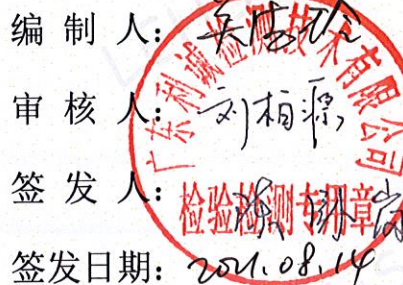 编制人：
审核人：刘柏源
签发人：
签发日期：2021.08.14
广东利诚检测技术有限公司
检验检测专用章